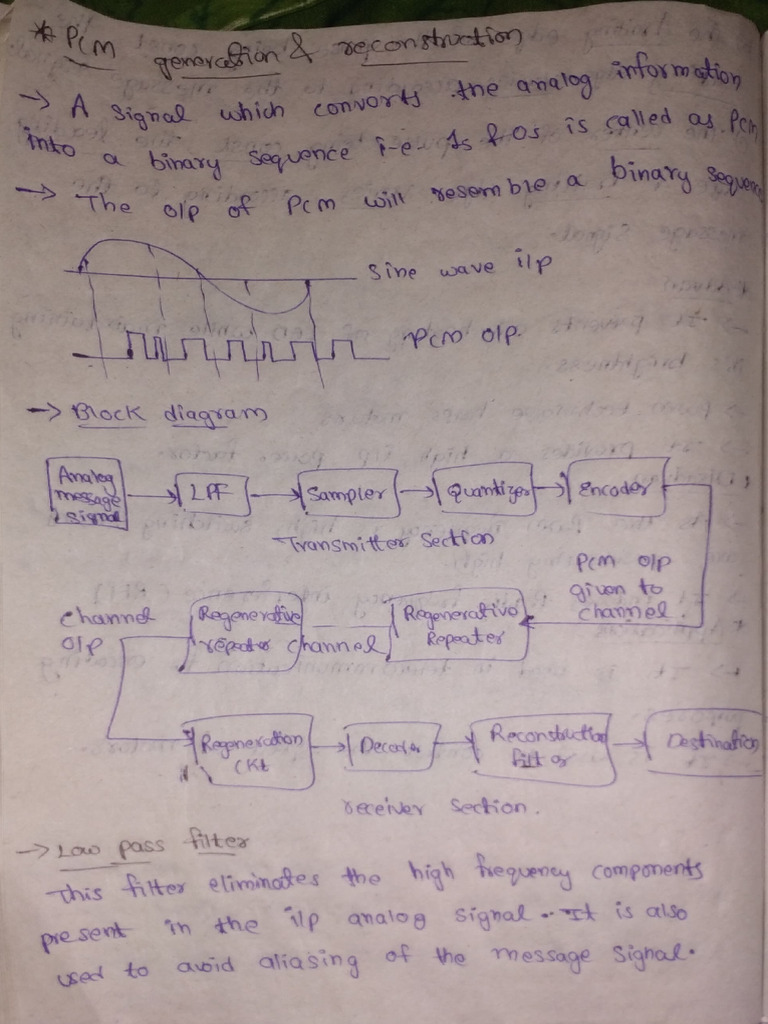 * PCM generation & reconstruction
→ A signal which converts the analog information
into a binary sequence i.e. 1s & 0s is called as PCM
→ The o/p of PCM will resemble a binary sequence
Sine wave i/p
PCM o/p.
→ Block diagram
Analog message signal
LPF
Sampler
Quantizer
Encoder
Transmitter Section
PCM o/p given to channel.
Channel o/p
Regenerative repeater
channel
Regenerative Repeater
Regeneration Ckt
Decoder
Reconstruction filter
Destination
receiver section.
→ Low pass filter
This filter eliminates the high frequency components
present in the i/p analog signal. It is also
used to avoid aliasing of the message signal.